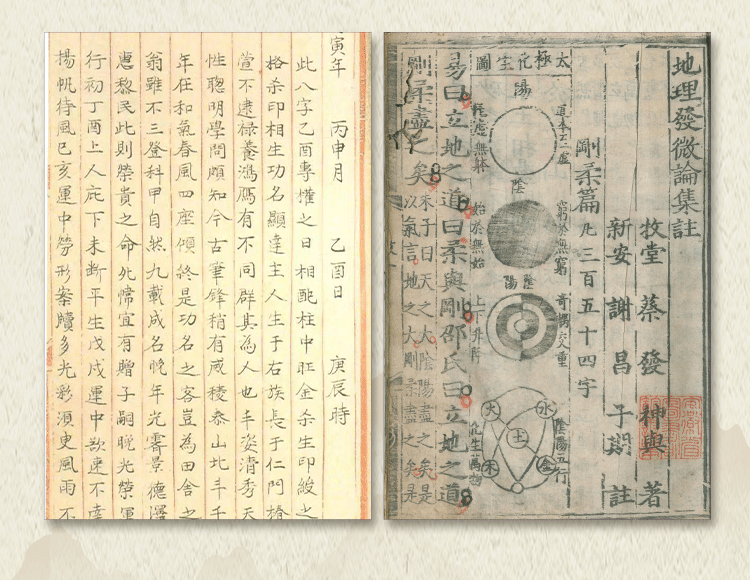 地理發微論集註
牧堂 蔡 發 神與 著
新安 謝 昌 子期 註
剛柔篇 凡三百五十四字
太極化生圖
陽
陰
窮於無窮
始於無始
陰 陽
上下升降
陰陽五行
化生萬物
火 水 土 木 金
易曰立地之道曰柔與剛邵氏曰立地之道
剛柔盡之矣 朱子曰天之大陰陽盡之矣是
以氣言地之大剛柔盡之矣是
寅年 丙申月 乙酉日 庚辰時
此八字乙酉專權之日相配柱中旺金杀生印綬之
格杀印相生功名顯達主人生于右族長于仁門椿
萱不逮祿養鴻鴈有不同群其為人也丰姿清秀天
性聰明學問頗知今古筆鋒稍有威稜泰山北斗千
年在和氣春風四座傾終是功名之客豈為田舍之
翁雖不三登科甲自然九載成名晚年光霽景德澤
惠黎民此則榮貴之命 幃宜有贈子嗣晚光榮運
行初丁酉上人庇下未斷平生戊戌運中欲速不達
揚帆待風巳亥運中勞形案牘多光彩須更風雨不